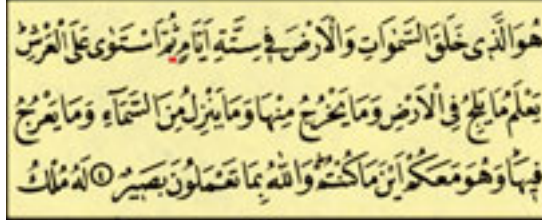 هُوَ الَّذِى خَلَقَ السَّمٰوَاتِ وَالْاَرْضَ فِى سِتَّةِ اَيَّامٍ ثُمَّ اسْتَوٰى عَلَى الْعَرْشِ
يَعْلَمُ مَا يَلِجُ فِى الْاَرْضِ وَمَا يَخْرُجُ مِنْهَا وَمَا يَنْزِلُ مِنَ السَّمَآءِ وَمَا يَعْرُجُ
فِيهَا وَهُوَ مَعَكُمْ اَيْنَ مَا كُنْتُمْ وَاللّٰهُ بِمَا تَعْمَلُونَ بَصِيرٌ ٤ لَهُ مُلْكُ